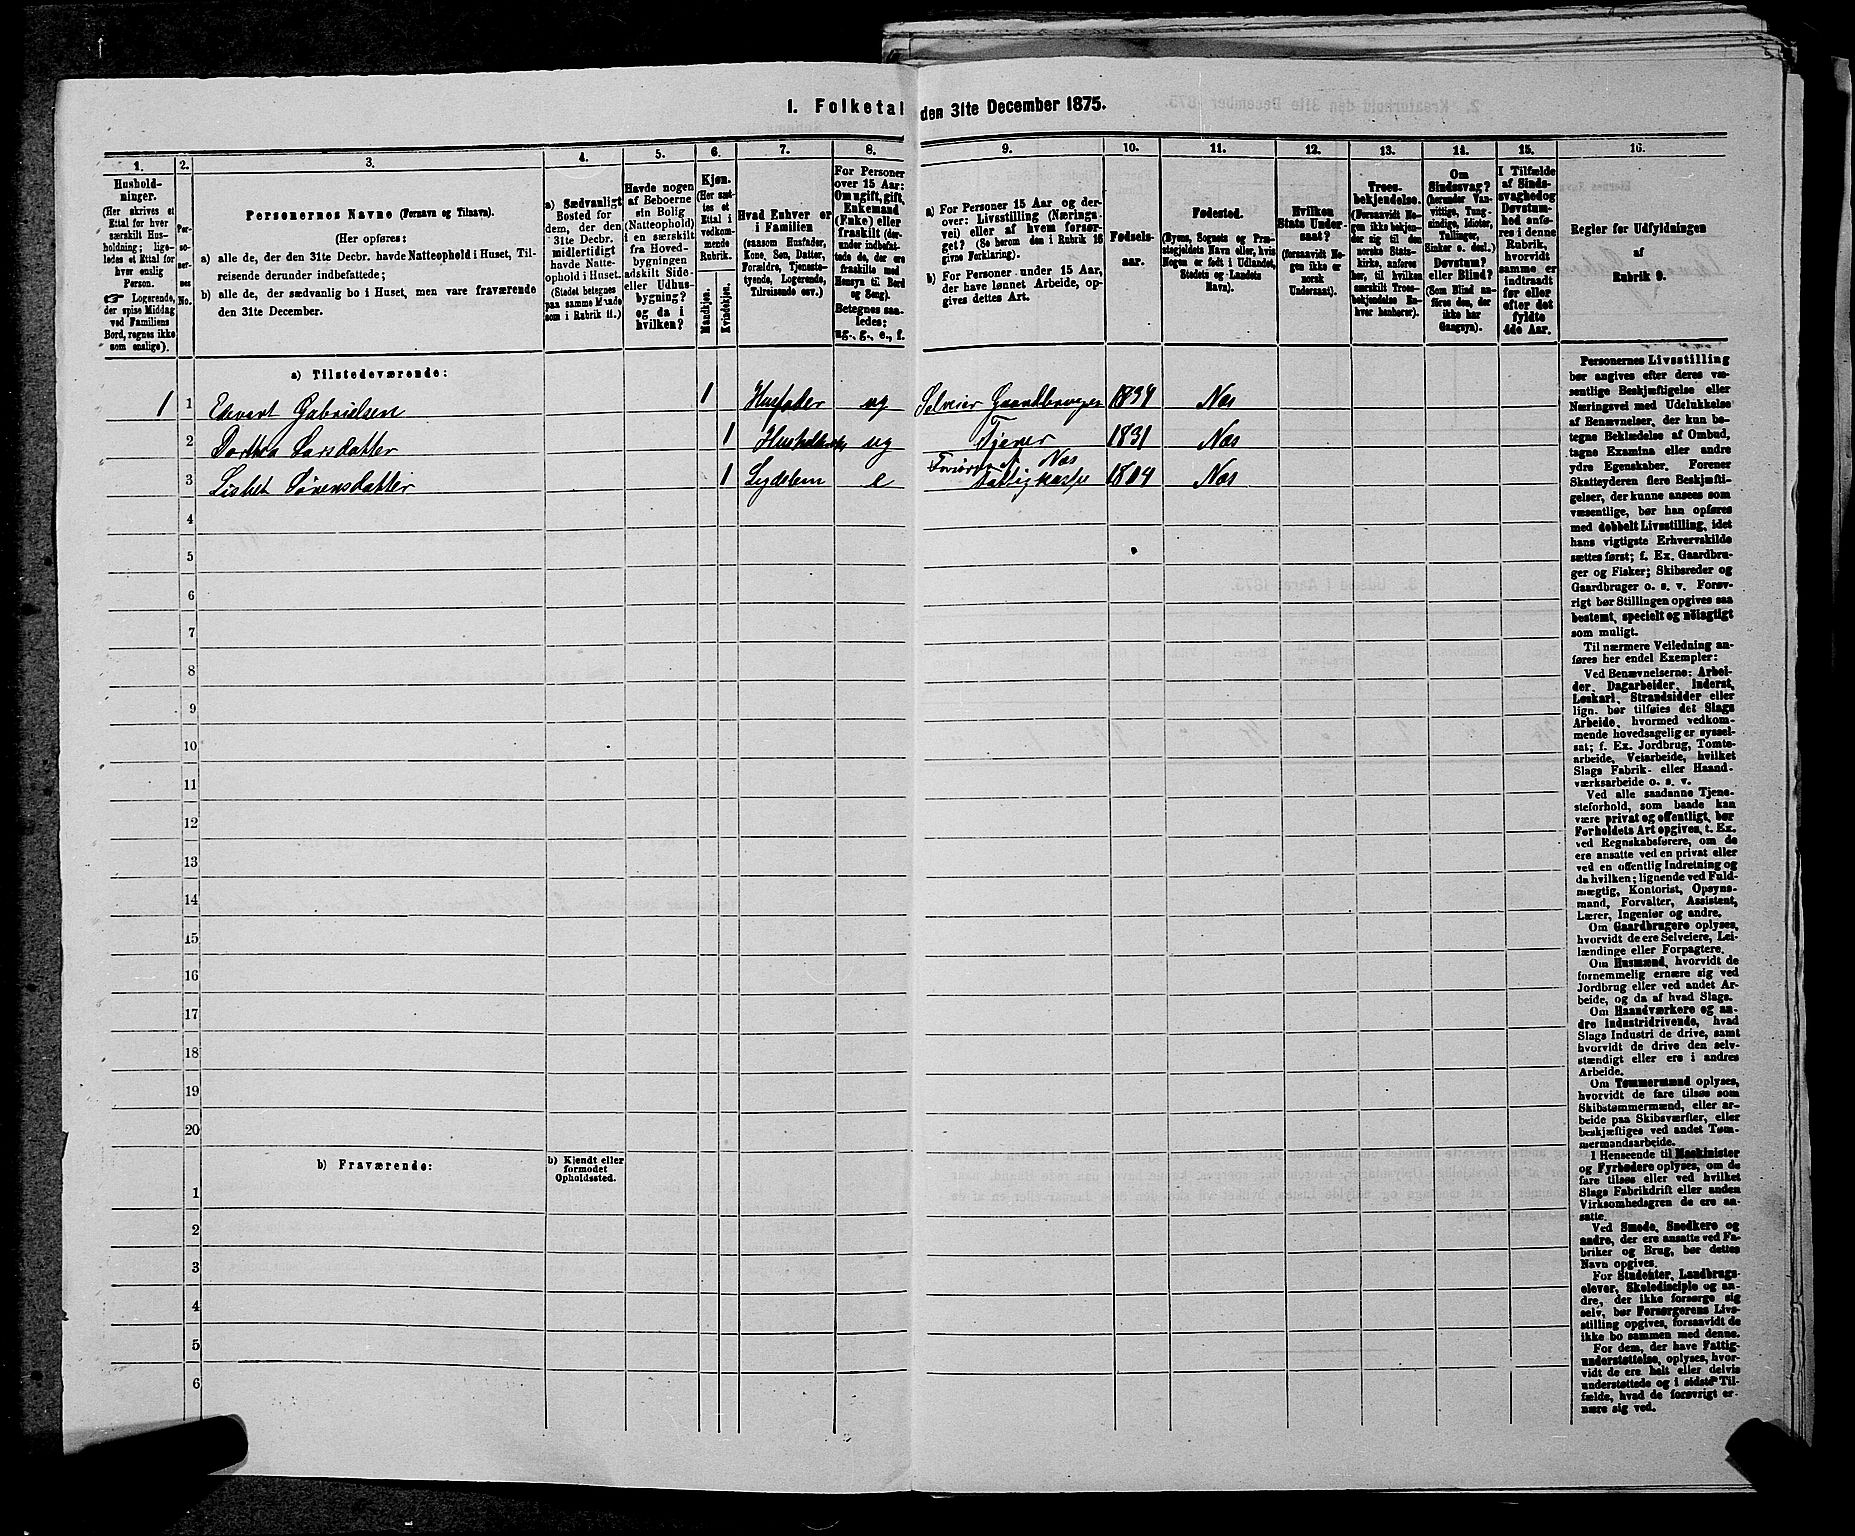 1. Folketal den 31te December 1875.
1.
2.
3.
4.
5.
6.
7.
8.
9.
10.
11.
12.
13.
14.
15.
16.
Hushold-
ninger.
(Her skrives et
Ettal for hver
særskilt Hus-
holdning; lige-
ledes et Ettal for
hver enslig
Person.
☞ Logerende,
der spise Middag
ved Familiens
Bord, regnes ikke
som enslige).
Per-
so-
ner-
nes
No.
Personernes Navne (Fornavn og Tilnavn).
(Her opføres:
a) alle de, der den 31te Decbr. havde Natteophold i Huset, Til-
reisende derunder indbefattede;
b) alle de, der sædvanlig bo i Huset, men vare fraværende
den 31te December.
a) Sædvanligt
Bosted for
dem, der den
31te Decbr.
midlertidigt
havde Natte-
ophold i Huset.
(Stedet betegnes
paa samme Maade
som i Rubrik 11.)
Havde nogen
af Beboerne
sin Bolig
(Natteophold)
i en særskilt
fra Hoved-
bygningen
adskilt Side-
eller Udhus-
bygning?
og da i
hvilken?
Kjøn.
(Her sæt-
tes et
Ettal i
vedkom-
mende
Rubrik.
Mandkjøn.
Kvindekjøn.
Hvad Enhver er
i Familien
(saasom Husfader,
Kone, Søn, Datter,
Forældre, Tjeneste-
tyende, Logerende,
Tilreisende osv.)
For Personer
over 15 Aar:
Om ugift, gift,
Enkemand
(Enke) eller
fraskilt (der-
under indbefat-
tede de, der ere
fraskilte med
Hensyn til Bord
og Seng).
Betegnes saa-
ledes:
ug., g., e., f.
a) For Personer 15 Aar og der-
over: Livsstilling (Nærings-
vei) eller af hvem forsør-
get? (Se herom den i Rubrik 16
givne Forklaring).
b) For Personer under 15 Aar,
der have lønnet Arbeide, op-
gives dettes Art.
Fødsels-
aar.
Fødested.
(Byens, Sognets og Præ-
stegjeldets Navn eller, hvis
Nogen er født i Udlandet,
Stedets og Landets
Navn).
Hvilken
Stats Under-
saat?
(forsaavidt No-
gen ikke er
norsk
Undersaat).
Troes-
bekjendelse.
(Forsaavidt No-
gen ikke bekjen-
der sig til den
norske Stats-
kirke, anføres
her, til hvilken
særskilt Troes-
bekjendelse En-
hver henhører).
Om
Sindssvag?
(herunder Van-
vittige, Tung-
sindige, Idioter,
Tullinger,
Sinker o. desl.)
Døvstum?
eller Blind?
(Som Blind an-
føres den, der
ikke har
Gangsyn).
I Tilfælde
af Sinds-
svaghed og
Døvstum-
hed anfø-
res i denne
Rubrik,
hvorvidt
samme er
indtraadt
før eller
efter det
fyldte
4de Aar.
Regler for Udfyldningen
af
Rubrik 9.
a) Tilstedeværende:
1 1 Edvart Gabrielsen 1 Husfader ug Selveier Gaardbruger 1834 Næs
2 Dorthea Larsdatter 1 ug Tjener 1831 Næs
3 Lisbet Sörensdatter 1 Lægdslem e Næs Fattigkasse 1804 Næs
4
5
6
7
8
9
10
11
12
13
14
15
16
17
18
19
20
b) Fraværende:
b) Kjendt eller
formodet
Opholdssted.
1
2
3
4
5
6
Personernes Livsstilling
bør angives efter deres væ-
sentlige Beskjæftigelse eller
Næringsvei med Udelukkelse
af Benævnelser, der kun be-
tegne Beklædelse af Ombud,
tagne Examina eller andre
ydre Egenskaber. Forener
Skatteyderen flere Beskjæfti-
gelser, der kunne ansees som
væsentlige, bør han opføres
med dobbelt Livsstilling, idet
hans vigtigste Erhvervskilde
sættes først; f. Ex. Gaardbru-
ger og Fisker; Skibsreder og
Gaardbruger o. s. v. Forøv-
rigt bør Stillingen opgives saa
bestemt, specielt og nøiagtigt
som muligt.
Til nærmere Veiledning an-
føres her endel Exempler:
Ved Benævnelserne: Arbei-
der, Dagarbeider, Inderst,
Løskarl, Strandsidder eller
lign. bør tilføies det Slags
Arbeide, hvormed vedkom-
mende hovedsagelig er syssel-
sat; f. Ex. Jordbrug, Tomte-
arbeide, Veiarbeide, hvilket
Slags Fabrik- eller Haand-
værksarbeide o. s. v.
Ved alle saadanne Tjene-
steforhold, som baade kan
være privat og offentligt, bør
Forholdets Art opgives, t. Ex.
ved Regnskabsførere, om de
ere ansatte ved en privat eller
ved en offentlig Indretning og
da hvilken; lignende ved Fuld-
mægtig, Kontorist, Opsyns-
mand, Forvalter, Assistent,
Lærer, Ingeniør og andre.
Om Gaardbrugere oplyses,
hvorvidt de ere Selveiere, Lei-
lændinge eller Forpagtere.
Om Husmænd, hvorvidt de
fornemmelig ernære sig ved
Jordbrug eller ved andet Ar-
beide, og da af hvad Slags.
Om Haandværkere og an-
dre Industridrivende, hvad
Slags Industri de drive, samt
hvorvidt de drive den selv-
stændigt eller ere i andres
Arbeide.
Om Tømmermænd oplyses,
hvorvidt de fare tilsøs som
Skibstømmermænd, eller ar-
beide paa Skibsværfter, eller
beskjæftiges ved andet Tøm-
mermandsarbeide.
I Henseende til Maskinister
og Fyrbødere oplyses, om de
fare tilsøs eller ved hvilket
Slags Fabrikdrift eller anden
Virksomhedsgren de ere an-
satte.
Ved Smede, Snedkere og
andre, der ere ansatte ved Fa-
briker og Brug, bør dettes
Navn opgives.
For Studenter, Landbrugs-
elever, Skoledisciple og an-
dre, der ikke forsørge sig
selv, bør Forsørgerens Livs-
stilling opgives, forsaavidt de
ikke bo sammen med denne.
For dem, der have Fattig-
understøttelse, oplyses, hvor-
vidt de ere helt eller delvis
understøttede og i sidste Til-
fælde, hvad de forøvrigt er-
nære sig ved.